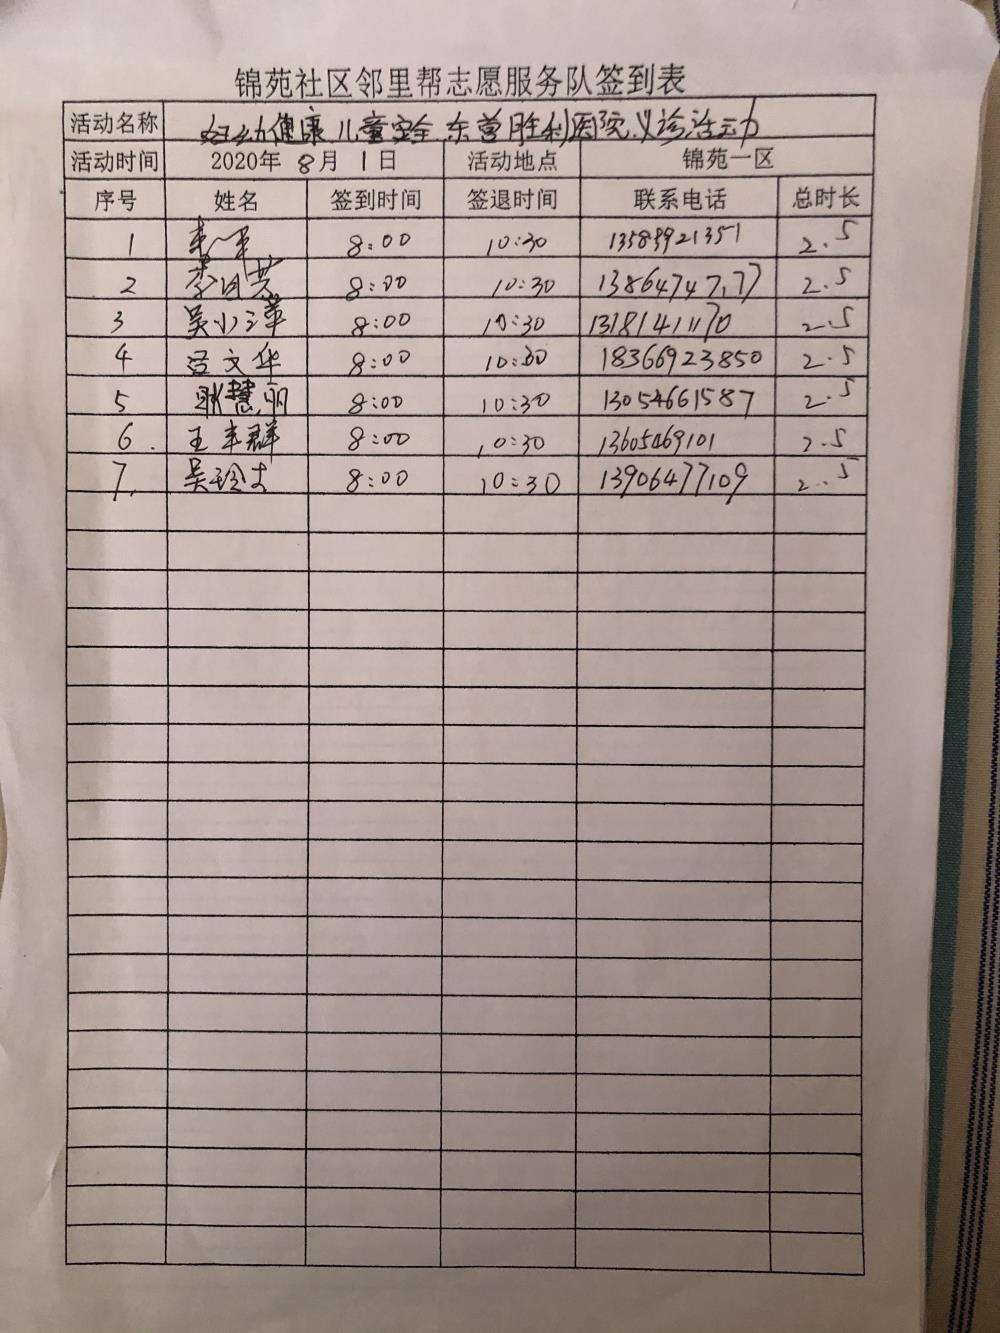 锦苑社区邻里帮志愿服务队签到表
活动名称 妇幼健康儿童安全东营胜利医院义诊活动
活动时间 2020年8月1日 活动地点 锦苑一区
序号 姓名 签到时间 签退时间 联系电话 总时长
1 8:00 10:30 13583921351 2.5
2 李月芳 8:00 10:30 2.5
3 吴小萍 8:00 10:30 13181411170 2.5
4 吕文华 8:00 10:30 18366923850 2.5
5 耿慧丽 8:00 10:30 13054661587 2.5
6. 王丰群 8:00 10:30 13605469101 2.5
7. 吴玲 8:00 10:30 13906477109 2.5